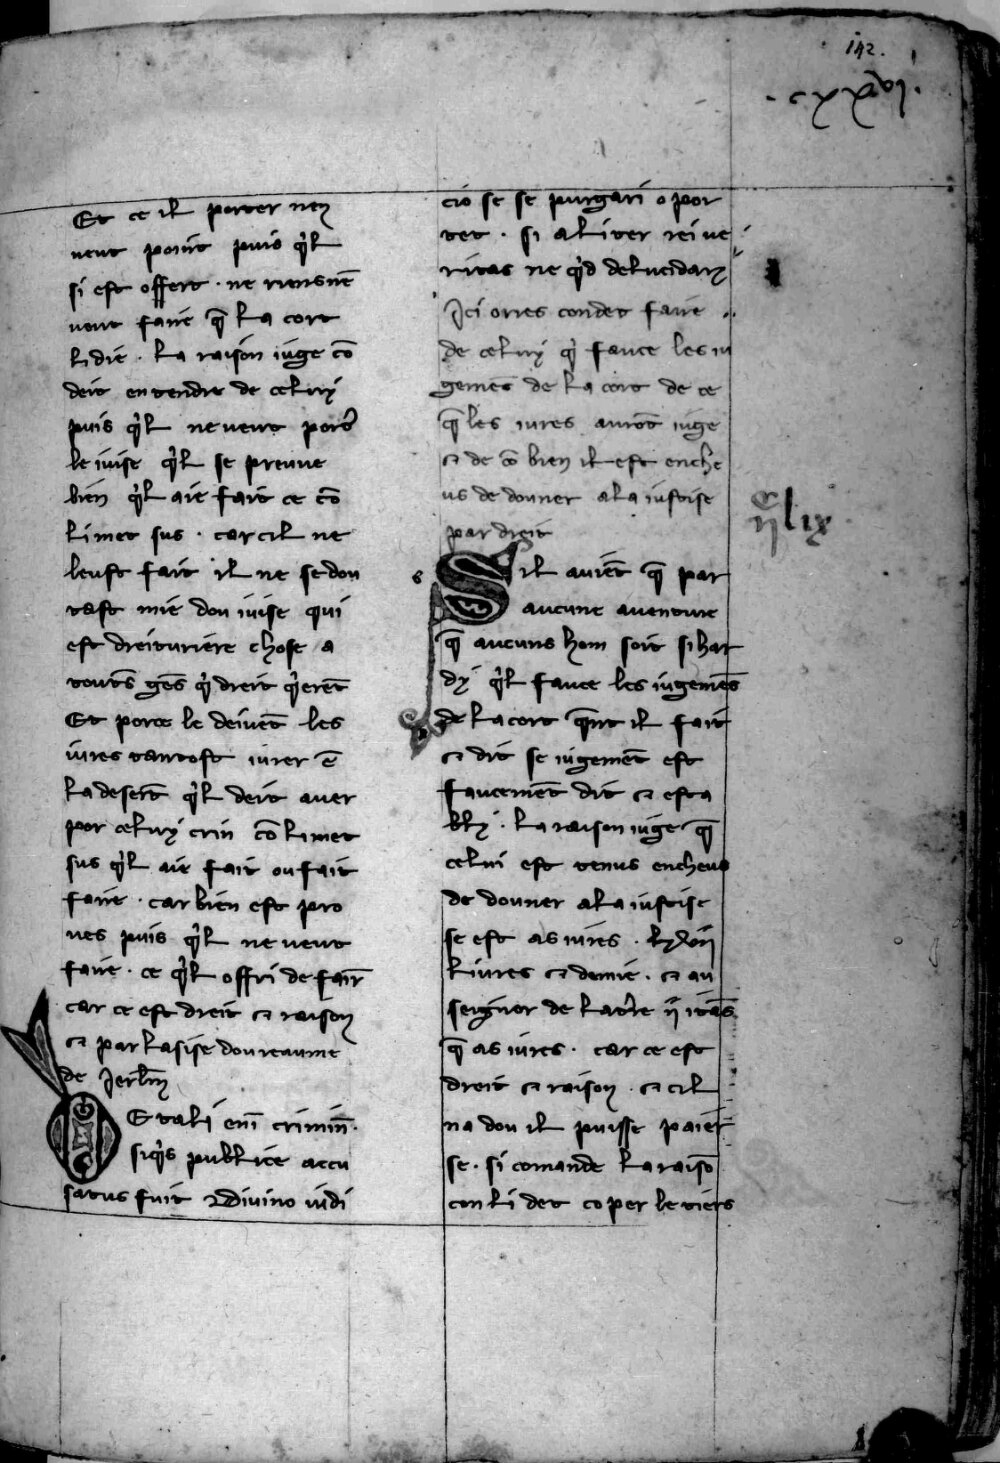 142.
.cxxvi.
Et ce il porter nen
veut point puis q'l
si est offert . ne riens nē
vont faire q̄ la cort
li die . la raison iuge cō
deit entendre de celuy
puis q'l ne veut port'
le iuise q'l se preuue
bien q'l aie fait ce cō
li met sus . car cil ne
leust fait il ne se don
tast mie dou iuise qui
est dreituriere chose a
toutˢ gēs q' dreit q'erēt
Et porce le deiuēt les
iures tantost iurer ē
la desert̄ q'l deit aver
por celuy crin cō li met
sus q'l aie fait ou fait
faire . car bien est pro
ves puis q'l ne veut
faire . ce q'l offri de fair̄
car ce est dreit ⁊ raison
⁊ par lasise dou reaume
de Jerl̄m
De tali eni̅ crimin̄ .
siq's publice accu
satus fuit ⁊ divino iudi
cio se se purgari opor
tet . si aliter rei ve
ritas ne q'd delucidarj
Ici orres con det faire
de celuy q' fauce les iu
gemēs de la cort de ce
q̄ les iures aurōt iuge
⁊ de cō bien il est enche
us de donner a la iustise
par dreit
Sil auiēt q̄ par
aucune auenture
q̄ aucuns hom soit si har
dy q'l fauce les iugemēs
de la cort q̄nt il fait
⁊ dit se iugemēt est
faucemēt dit ⁊ esta
bly . la raison iuge q̄
celui est tenus encheus
de donner a la iustise
se est as iures . lxvii
liures ⁊ demie . ⁊ au
seignor de la t're ij itās
q̄ as iures . car ce est
dreit ⁊ raison . ⁊ cil
na dou il puisse paier
se . si comande la raisō
con li det coper le tiers
ijclix